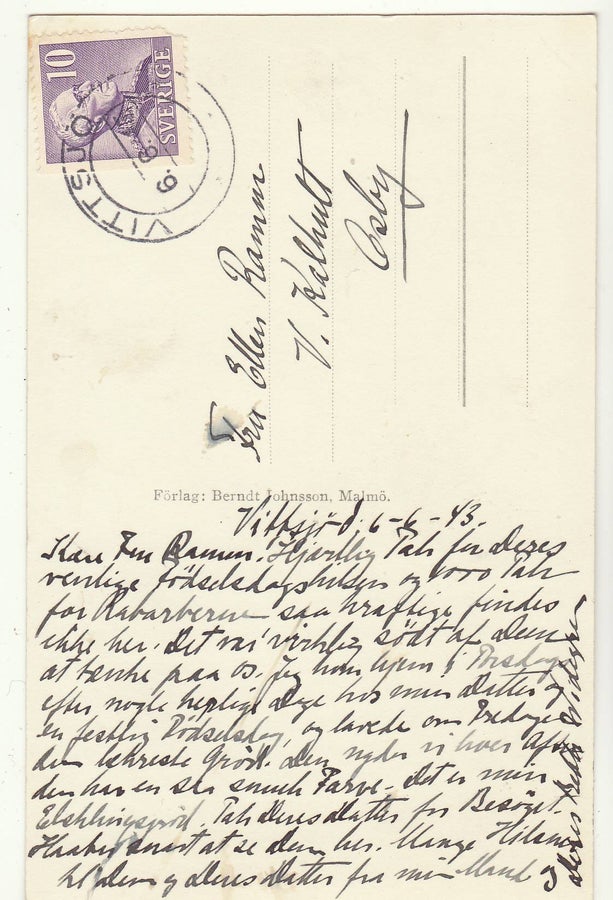 10
SVERIGE
VITTSJÖ
9 6
Fru Ellen Ramm
V. Kalhult
Osby
Förlag: Berndt Johnsson, Malmö.
Vittsjö d. 6-6-43.
Kære Fru Ramm. Hjærtlig Tak for Deres
venlige Födselsdagshilsen og 1000 Tak
for Rabarberne saa kraftige findes
ikke her. Det var virkelig södt af Dem
at tænke paa os. Jeg kom hjem i Torsdags
efter nogle herlige Dage hos min Datter og
en festlig Födselsdag, og lavede om Fredagen
den lækreste Gröd. Den nyder vi hver Aften
den har en saa smuk Farve. Det er min
Elsklingsgröd. Tak Deres Datter for Besöget.
Haaber snart at se dem her. Mange Hilsner
til Dem og Deres Datter fra min Mand og
Deres